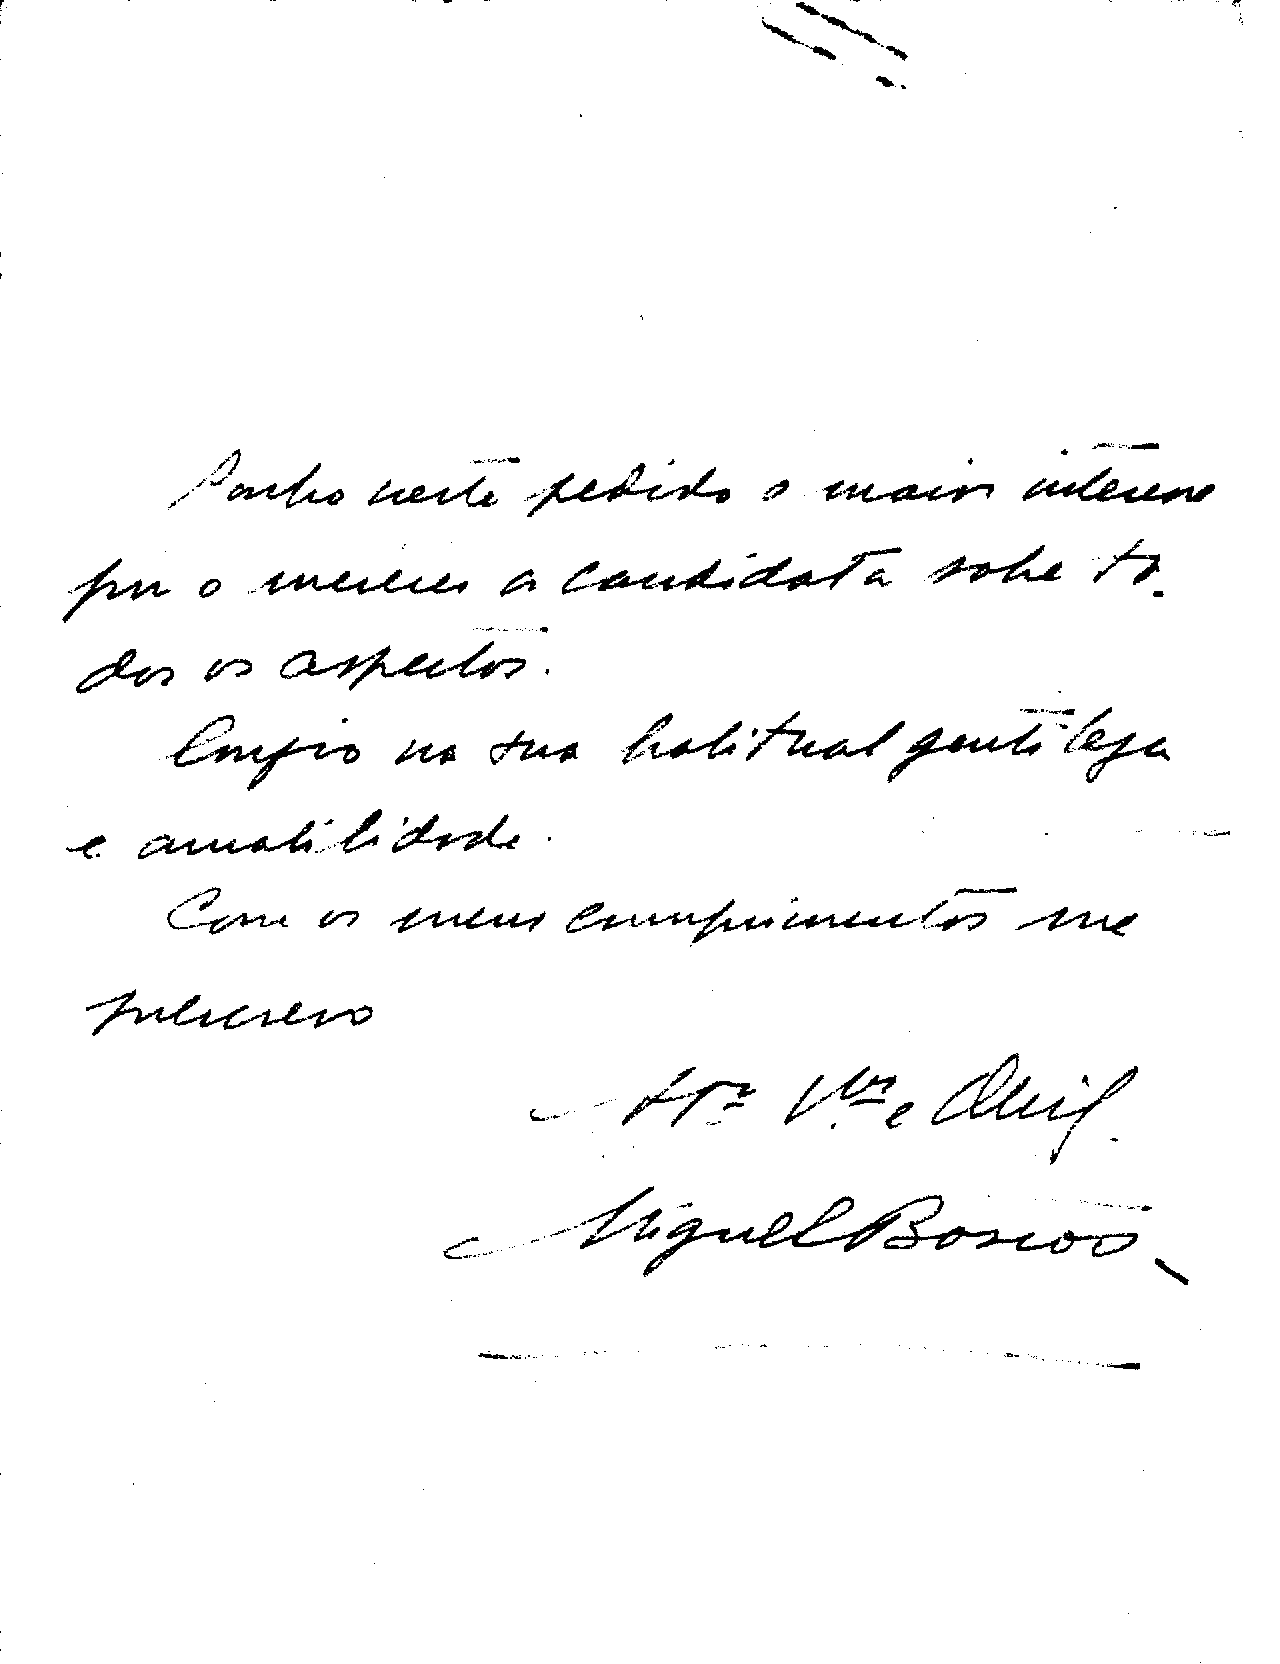 Ponho neste pedido o maior interesse
por o merecer a candidata sobre to-
dos os aspectos.
Confio na sua habitual gentileza
e amabilidade.
Com os meus cumprimentos me
subscrevo
Att.º V.or e Obrig.
Miguel Bastos